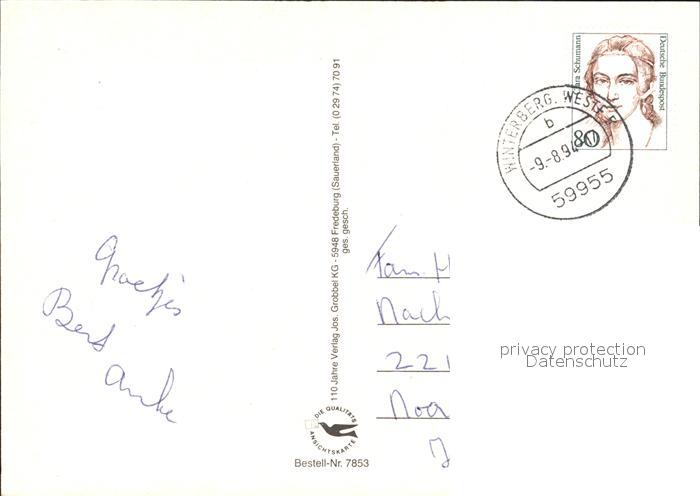 Groetjes
Bert
Anke
110 Jahre Verlag Jos. Grobbel KG - 5948 Fredeburg (Sauerland) - Tel. (0 29 74) 70 91
ges. gesch.
DIE QUALITÄTS
ANSICHTSKARTE
Bestell-Nr. 7853
Clara Schumann
Deutsche Bundespost
80
WINTERBERG, WESTF
b
-9.-8.94
59955
Fam. H
Nach
221
Noo
privacy protection
Datenschutz